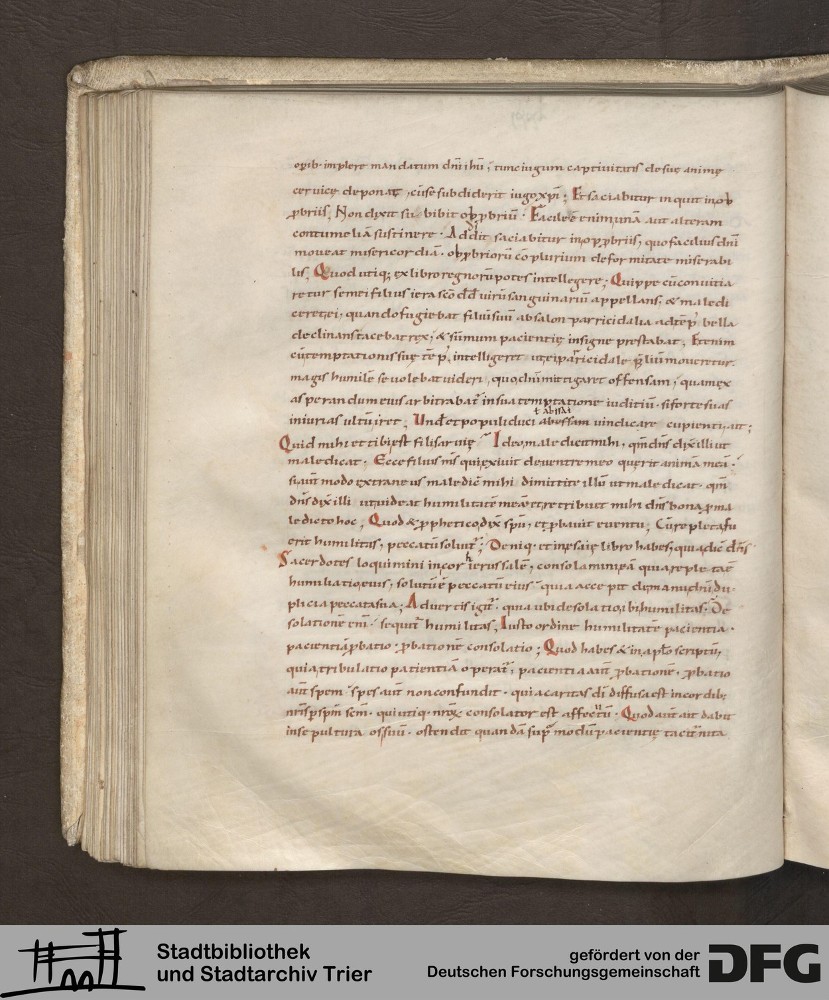 opib· implere mandatum dni ihu, tunc iugum captiuitatis de suę animę
ceruicę deponat, cu se subdiderit iugo xpi; Et saciabitur inquit in op
pbriis; Non dixit si bibit obpbriu. Facile e enim una aut alteram
contumeliā sustinere. Addit saciabitur in oppbriis, quo facilius dm
moueat misericordiā. obpbrioru coplurium deformitate miserabi
lis; Quod utiq; ex libro regnoru potes intellegere; Quippe cu conuitia
retur semei filius iera sco dd uiru sanguinariu appellans, & maledi
ceret ei, quando fugiebat filiu suu absalon parricidalia adtep bella
declinans tacebat rex, & summum pacientię insigne prestabat; Etenim
cu temptationis suę tep intelligeret ut ei parricidale pliu moueretur.
magis humile se uolebat uideri, quo dni mitigaret offensam, quam ex
asperandum eius arbitrabat in sua temptatione iuditiu. si forte suas
ł abisai
iniurias ultu iret; Unde et populi duci abessam uindicare cupienti ait;
Quid mihi et tibi est fili saruię Ideo male dicit mihi, qm dns dix illi ut
male dicat. Ecce filius ms qui exiuit de uentre meo querit animā meā.
si aut modo extraneus maledic mihi dimittite illu ut male dicat. qm
dns dix illi ut uideat humilitate meā et retribuet mihi dns bona p ma
ledicto hoc; Quod & pphetico dix spu, et pbauit euentu; Cu repleta fu
erit humilitas, peccatu soluit; Deniq· et in esaię libro habes, quia dic ds
Sacerdotes loquimini in cor ierussale, consolamini eā quia reple ta e
humiliatio eius, solutu e peccatu eius quia accepit de manu dni du
plicia peccata sua; Aduertis igit. quia ubi desolatio, ibi humilitas. De
solatione eni sequit humilitas; Iusto ordine humilitate pacientia.
pacientiā pbatio. pbatione consolatio; Quod habes & in aplo scriptu,
quia tribulatio patientiā operat, pacientia aut pbatione, pbatio
aut spem spes aut non confundit. quia caritas di diffusa est in cordib;
nris p spm scm. qui utiq· nrox consolator est affectuu. Quod aut ait dabit
in sepultura ossuu. ostendit quandā sup modu pacientię taciturnita
Stadtbibliothek
und Stadtarchiv Trier
gefördert von der
Deutschen Forschungsgemeinschaft
DFG